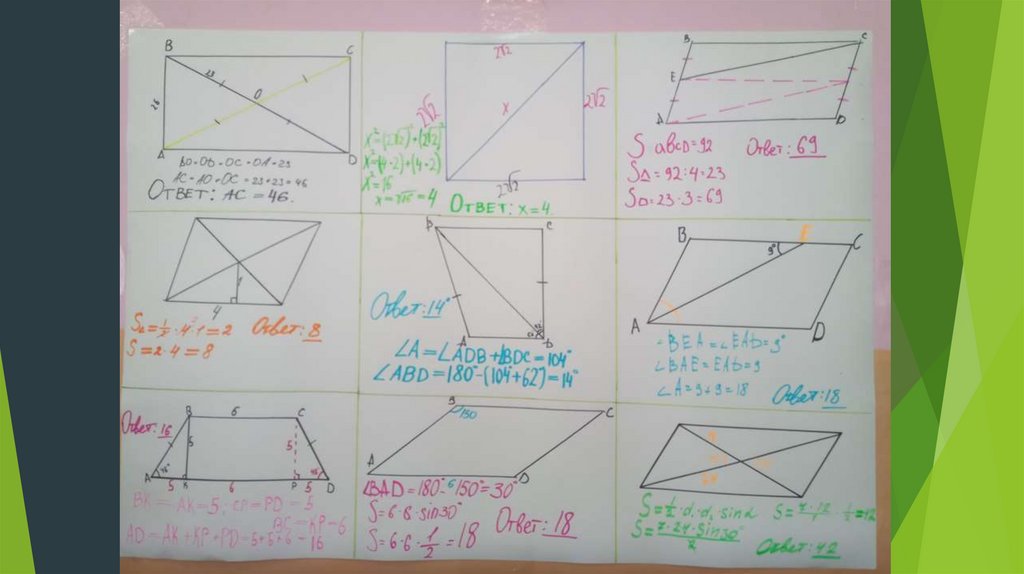 B
C
23
O
26
A
D
BO=OD=OC=OA=23
AC=AO+OC=23+23=46
ОТВЕТ: AC=46.
2√2
2√2
x
2√2
2√2
x²=(2√2)²+(2√2)²
x²=(4·2)+(4·2)
x²=16
x=√16=4
ОТВЕТ: x=4.
B
C
E
A
D
S abcd=92
Ответ: 69
SΔ=92:4=23
S□=23·3=69
1
4
SΔ=½·4·1=2
Ответ: 8
S=2·4=8
C
Ответ: 14°
A
∠A=∠ADB+∠BDC=104°
∠ABD=180°-(104+62)=14°
B
E
C
9°
A
D
∠BEA=∠EAD=9°
∠BAE=EAD=9
∠A=9+9=18
Ответ: 18
Ответ: 16
B
6
C
5
5
A
45°
45°
D
5
K
6
P
5
BK=AK=5; CP=PD=5
BC=KP=6
AD=AK+KP+PD=5+5+6=16
B
150
C
A
D
6
∠BAD=180°-150°=30°
S=6·6·sin30°
S=6·6·1/2=18
Ответ: 18
S=½·d₁·d₂·sinα
S=7·24·sin30°/2
Ответ: 42